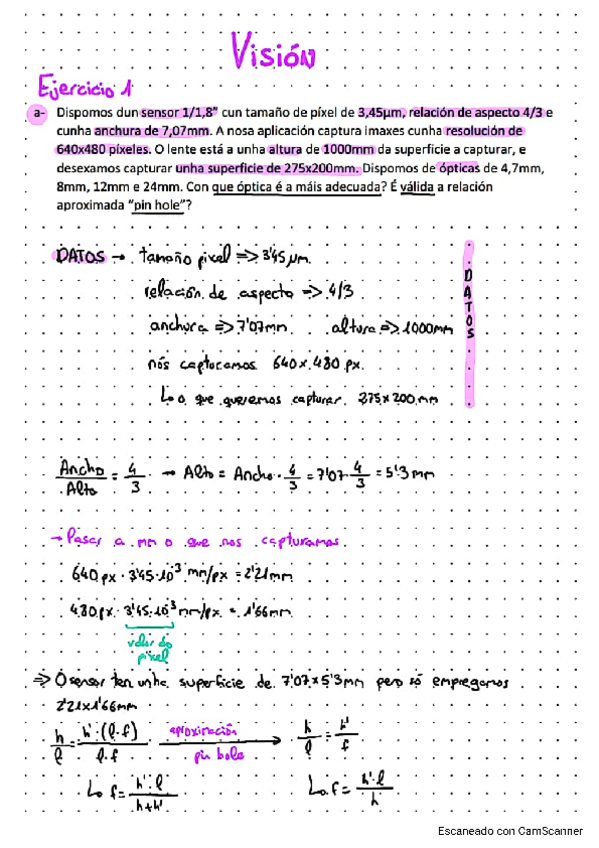 Visión
Ejercicio 1
a- Dispomos dun sensor 1/1,8” cun tamaño de píxel de 3,45µm, relación de aspecto 4/3 e
cunha anchura de 7,07mm. A nosa aplicación captura imaxes cunha resolución de
640x480 píxeles. O lente está a unha altura de 1000mm da superficie a capturar, e
desexamos capturar unha superficie de 275x200mm. Dispomos de ópticas de 4,7mm,
8mm, 12mm e 24mm. Con que óptica é a máis adecuada? É válida a relación
aproximada “pin hole”?
DATOS → tamaño pixel => 3'45 µm.
relación de aspecto => 4/3
anchura => 7'07mm altura => 1000mm
nós capturamos 640 x 480 px.
↳ o que queremos capturar 275 x 200 mm
DATOS
Ancho/Alto = 4/3 → Alto = Ancho · 4/3 = 7'07 · 4/3 = 5'3 mm
→ Pasar a mm o que nos capturamos
640 px · 3'45·10³ mm/px = 2'21mm
480 px · 3'45·10³ mm/px = 1'66mm
valor do
pixel
=> O sensor ten unha superficie de 7'07x5'3mm pero só empregamos
2'21x1'66mm
h/l = h'·(l-f)/l·f aproximación pin hole → h/l = h'/f
↳ f = h'·l/h+h' ↳ f = h'·l/h
Escaneado con CamScanner